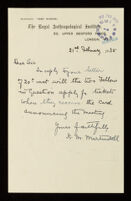 The Royal Anthropological Institute
52, Upper Bedford Place,
London, W.C.1
21st February 1935
Dear Sir,
In reply to your letter
of 20th inst. will the two Fellows
in question apply for tickets
when they receive the Card
announcing the Meeting
Yours faithfully
K. M. Martindell